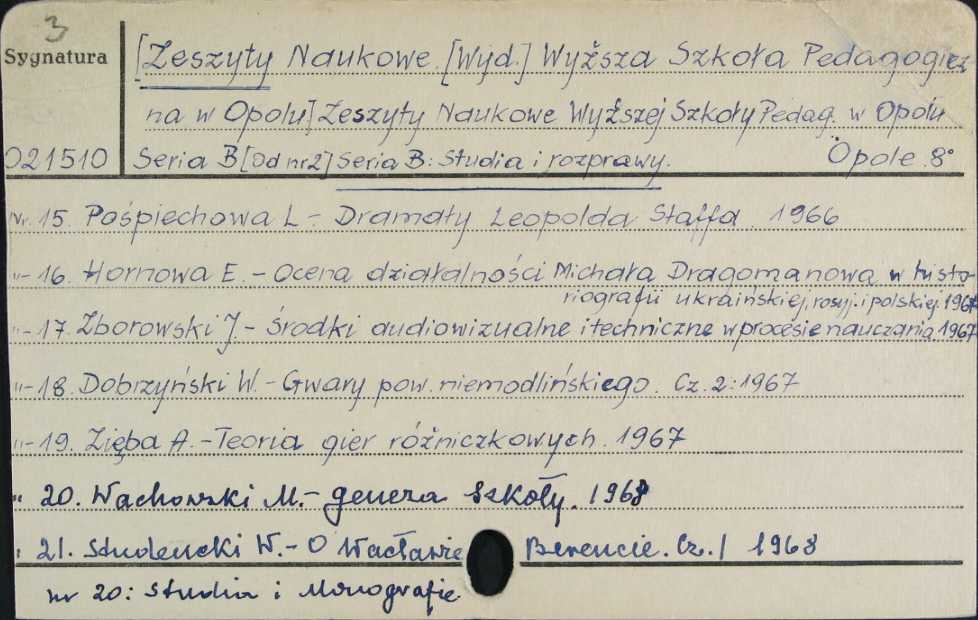 3
Sygnatura
[Zeszyty Naukowe. [Wyd.] Wyższa Szkoła Pedagogicz-
na w Opolu] Zeszyty Naukowe Wyższej Szkoły Pedag. w Opolu
021510 Seria B [Od nr 2] Seria B: Studia i rozprawy. Opole. 8°
Nr. 15. Pośpiechowa L. - Dramaty Leopolda Staffa. 1966
"- 16. Hornowa E. - Ocena działalności Michała Dragomanowa w histo-
riografii ukraińskiej, rosyj. i polskiej. 1967
"- 17. Zborowski J. - Środki audiowizualne i techniczne w procesie nauczania. 1967
"- 18. Dobrzyński W. - Gwary pow. niemodlińskiego. Cz. 2: 1967
"- 19. Zięba A. - Teoria gier różniczkowych. 1967
" 20. Wachowski M. - Geneza szkoły. 1968
" 21. Studencki W. - O Wacławie Berencie. Cz. 1 1968
nr 20: Studia i Monografie.